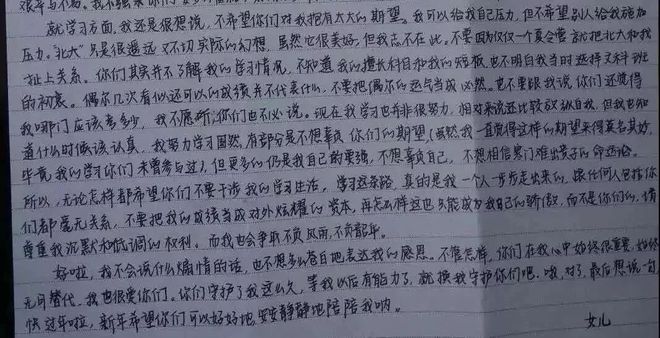 艰辛与不易。我不强求你们
就学习方面，我还是很想说，不希望你们对我抱有太大的期望。我可以给我自己压力，但不希望别人给我施加
压力。"北大"只是很遥远又不切实际的幻想，虽然它很美好，但我志不在此。不要因为仅仅一个夏令营就把北大和我
扯上关系。你们其实并不了解我的学习情况，不知道我的擅长科目和我的短板，也不明白我当时选择文科班
的初衷。偶尔几次看似还可以的成绩并不代表什么，不要把偶尔的运气当成必然。也不要跟我说你们还觉得
我哪门应该考多少，我不愿听，你们也不必说。现在我学习也并非很努力，相对来说还比较放纵自我，但我也知
道什么时候该认真，我努力学习固然有部分是不想辜负你们的期望，(虽然我一直觉得这样的期望来得莫名其妙，
毕竟我的学习你们未曾参与过)，但更多的仍是我自己的要强，不想辜负自己，不想相信寒门难出贵子的命运论。
所以，无论怎样都希望你们不要干涉我的学习生活，学习这条路，真的是我一个人一步步走出来的，跟任何人包括你
们都毫无关系，不要把我的成绩当成对外炫耀的资本，再怎么样这也只能成为我自己的骄傲，而不是你们的，请
尊重我沉默和低调的权利。而我也会争取不负风雨，不负韶年。
好啦，我不会说什么煽情的话，也不想多么卷白地表达我的感恩。不管怎样，你们在我心中始终很重要，始终
无可替代，我也很爱你们。你们守护了我这么久，等我以后有能力了，就换我守护你们吧。哦，对了，最后想说一句
快过年啦，新年希望你们可以好好地，安安静静地陪陪我呐。
女儿